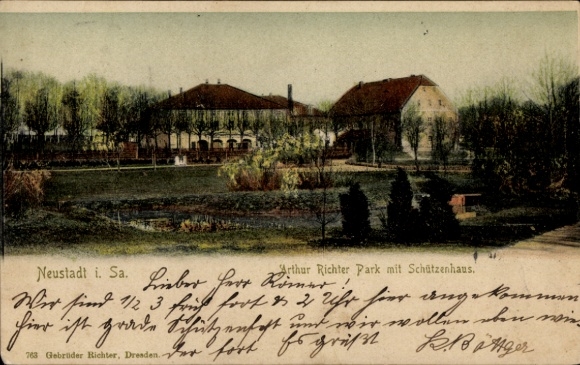 Neustadt i. Sa. Arthur Richter Park mit Schützenhaus.
Lieber Herr Römer!
Wir sind 1/2 3 früh fort & 2 Uhr hier angekommen
hier ist grade Schützenfest und wir wollen eben wie
der fort Es grüßt K. Böttger
763 Gebrüder Richter, Dresden.